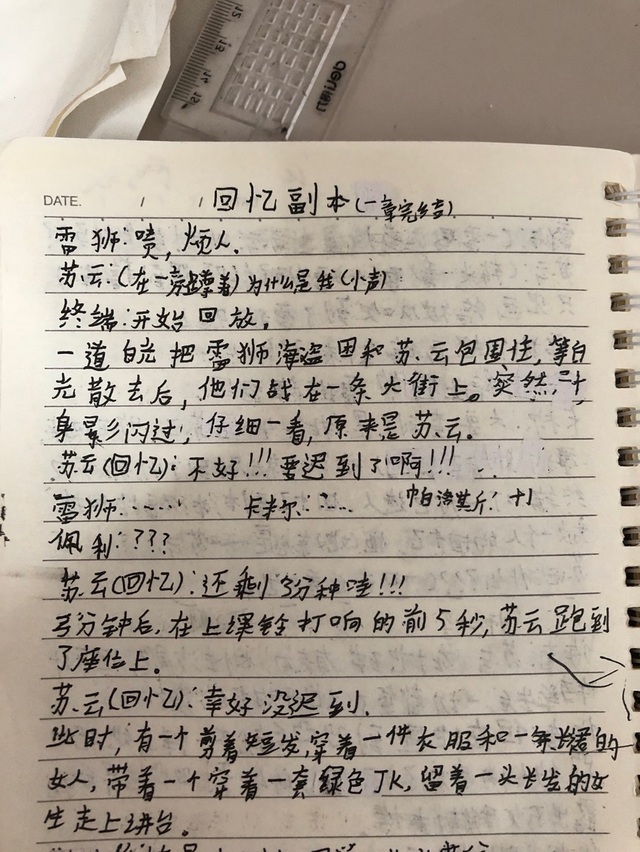 12 13 14 15
deli
DATE. / / 回忆副本(一章完结)
雷狮:啧,烦人.
苏云:(在一旁蹲着)为什么是我(小声)
终端:开始回放。
一道白光把雷狮海盗团和苏云包围住,等白
光散去后,他们战在一条大街上。突然,一个
身影闪过,仔细一看,原来是苏云。
苏云(回忆):不好!!!要迟到了啊!!!
雷狮:…… 卡米尔:…… 帕洛斯:
佩利:???
苏云(回忆):还剩3分种哇!!!
3分钟后,在上课铃打响的前5秒,苏云跑到
了座位上。
苏云(回忆):幸好没迟到.
此时,有一个剪着短发,穿着一件衣服和一条长裙的
女人,带着一个穿着一套绿色JK,留着一头长发的女
生走上讲台。